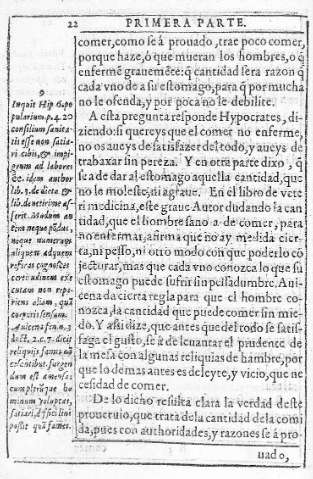 22 PRIMERA PARTE.
comer, como se á prouado, trae poco comer,
porque haze, ó que mueran los hombres, o q̃
enfermẽ grauemẽte: q̃ cantidad sera razon q̃
cada vno de a su estomago, para q̃ por mucha
no le ofenda, y por poca no le debilite.
A esta pregunta responde Hypocrates, di-
ziendo: si quereys que el comer no enferme,
no os aueys de satisfazer del todo, y aueys de
trabaxar sin pereza. Y en otra parte dixo, q̃
se a de dar al estomago aquella cantidad, que
no le moleste, ni agraue. En el libro de vete
ri medicina, este graue Autor dudando la can
tidad, que el hombre sano a de comer, para
no enfermar, afirma que no ay medida cier-
ta, ni pesso, ni otro modo con que poderlo cõ
jecturar, mas que cada vno conozca lo que su
estomago puede sufrir sin pesadumbre. Aui-
cena da cierta regla para que el hombre co-
nozca, la cantidad que puede comer sin mie-
do. Y assi dize, que antes que del todo se satis-
faga el gusto, se á de leuantar el prudente de
la mesa con algunas reliquias de hambre, por
que lo de mas antes es deleyte, y vicio, que ne
cesidad de comer.
De lo dicho resulta clara la verdad deste
proueruio, que trata de la cantidad de la comi
da, pues con authoridades, y razones se á pro-
uado,
9
Inquit Hip 6. epi
pularium p. 4. 20
consilium sanita
tis esse non satia
ri cibis, & impi-
grum ad labores
&c. idem author
lib. de dieta &
lib. de vetirine as
serit. Modum au
tem neque põdus,
neque numerum
aliquem ad quem
referas cognosces
certitudinem exe
cutam non repe-
riens aliam, quã
corporis sensum.
Auicena fen.
doct. 2. c. 7. dicit
reliquijs famis ad
existentibus surgen
dum est a mensa:
cumplitque ho
minum voluptas,
satiari, difficilior
possit quã fames.